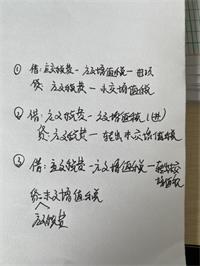 ① 借:应交税费-应交增值税-
贷:应交税费-未交增值税
② 借:应交税费-应交增值税(进)
贷:应交税费-转出未交增值税
③ 借:应交税费-应交增值税-转出未交
增值税
贷:未交增值税
应交税费